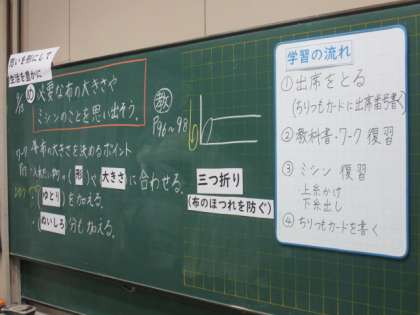 思いを形にして
生活を豊かに
め 必要な布の大きさや
ミシンのことを思い出そう。
教
P96〜98
ワーク 布の大きさを決めるポイント
形 や 大きさ に合わせる。
ゆとり を加える。
ぬいしろ 分も加える。
三つ折り
(布のほつれを防ぐ)
学習の流れ
① 出席をとる
(ちりつもカードに出席番号書く)
② 教科書・ワーク 復習
③ ミシン 復習
上糸かけ
下糸出し
④ ちりつもカードを書く